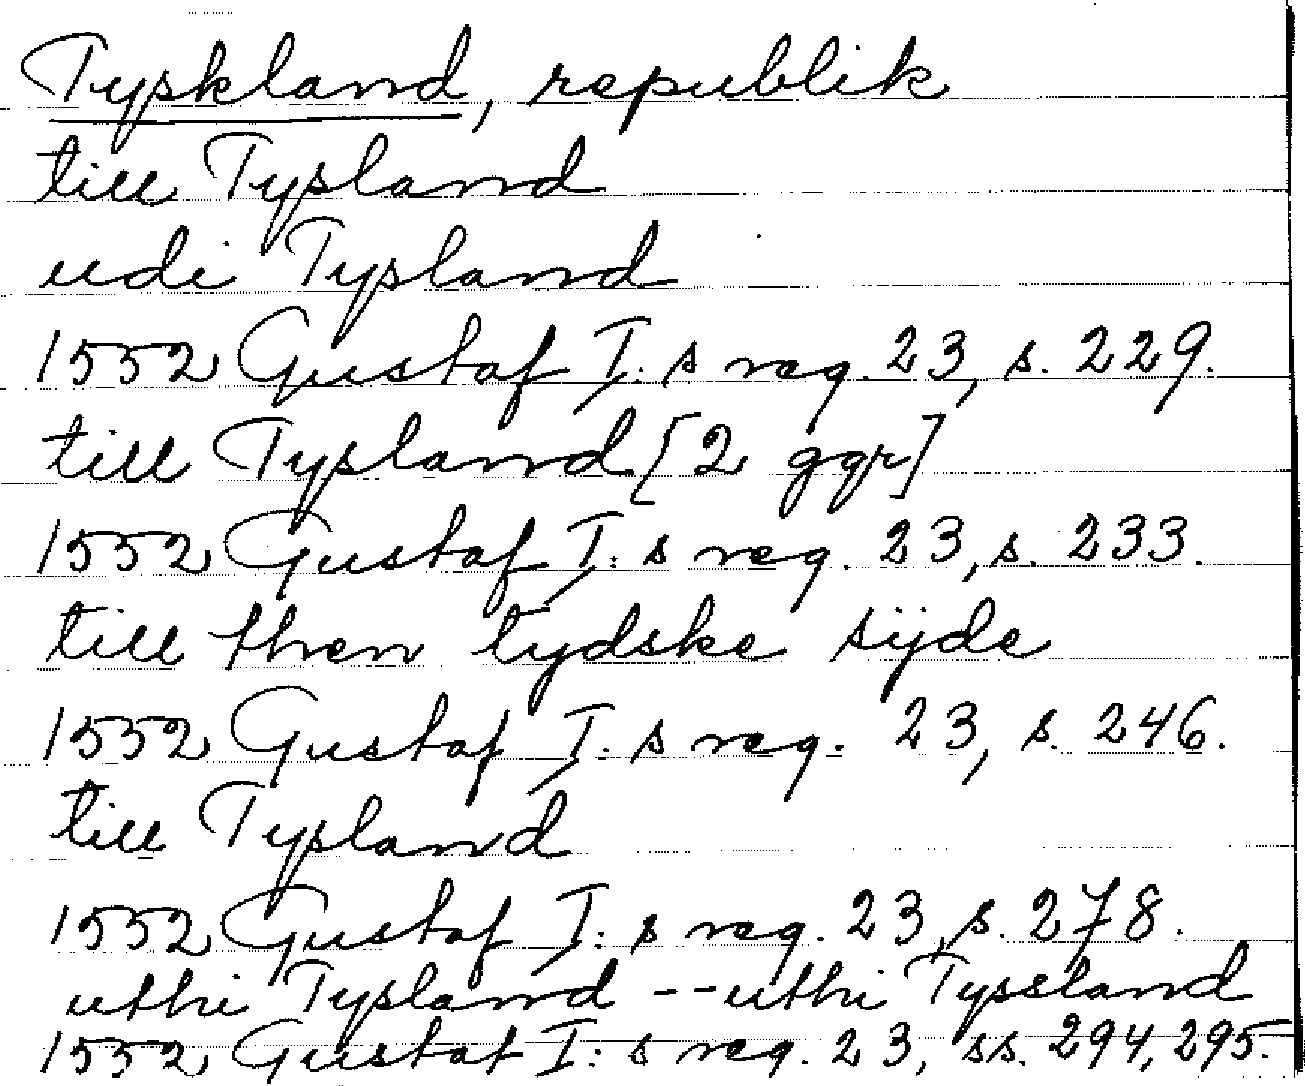 Tyskland, republik
till Tysland
udi Tysland
1552 Gustaf I: s reg. 23, s. 229.
till Tysland [2 ggr]
1552 Gustaf I: s reg. 23, s. 233.
till then tydske sijde
1552 Gustaf I: s reg. 23, s. 246.
till Tysland
1552 Gustaf I: s reg. 23, s. 278.
uthi Tysland -- uthi Tyssland
1552 Gustaf I: s reg. 23, ss. 294, 295.